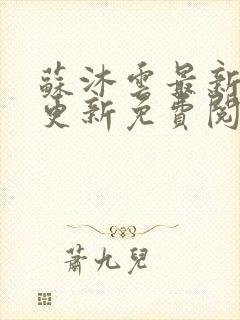 蘇沐雲最新
更新免費閱
蕭九兒